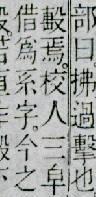 部曰拂過擊也
毄焉。校人三皁
借爲系字。今之